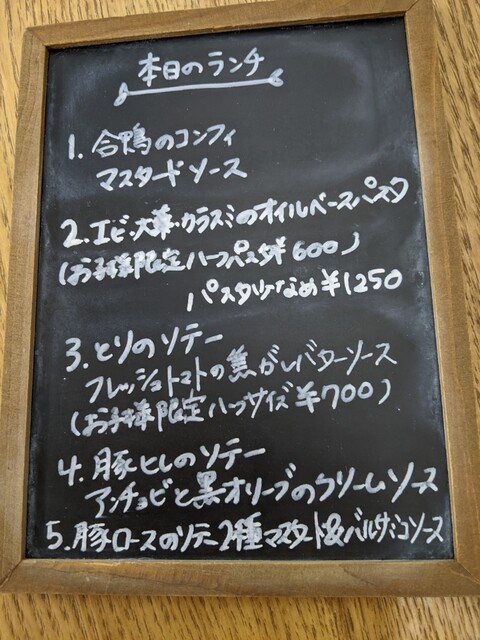 本日のランチ
1. 合鴨のコンフィ
マスタードソース
2. エビ・大葉・カラスミのオイルベースパスタ
(お子様限定ハーフパスタ¥600)
パスタ少なめ¥1250
3. とりのソテー
フレッシュトマトの焦がしバターソース
(お子様限定ハーフサイズ¥700)
4. 豚ヒレのソテー
アンチョビと黒オリーブのクリームソース
5. 豚ロースのソテー2種マスタード&バルサミコソース